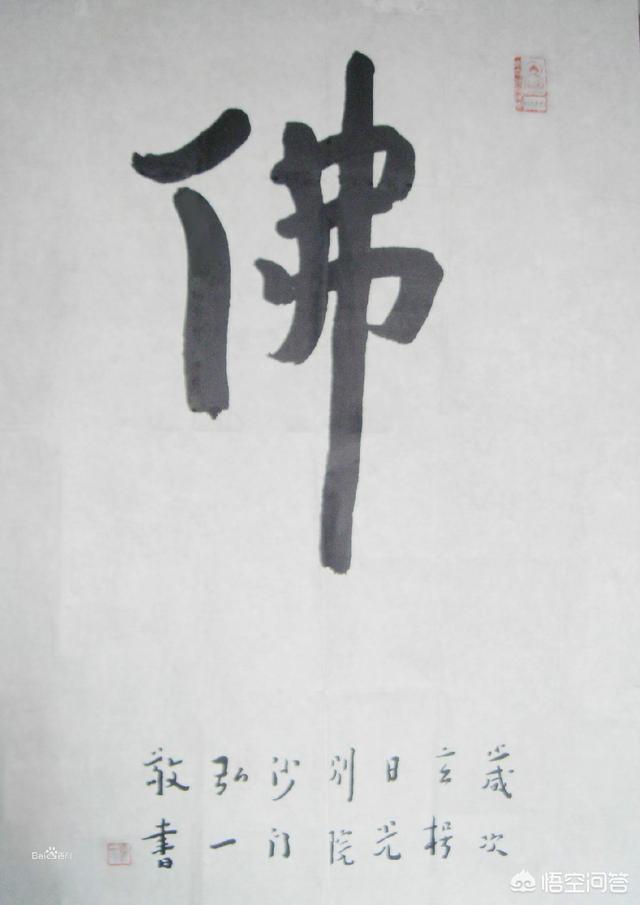 佛
歲次
玄枵
日光
別院
沙門
弘一
敬書
Bai百科
悟空问答